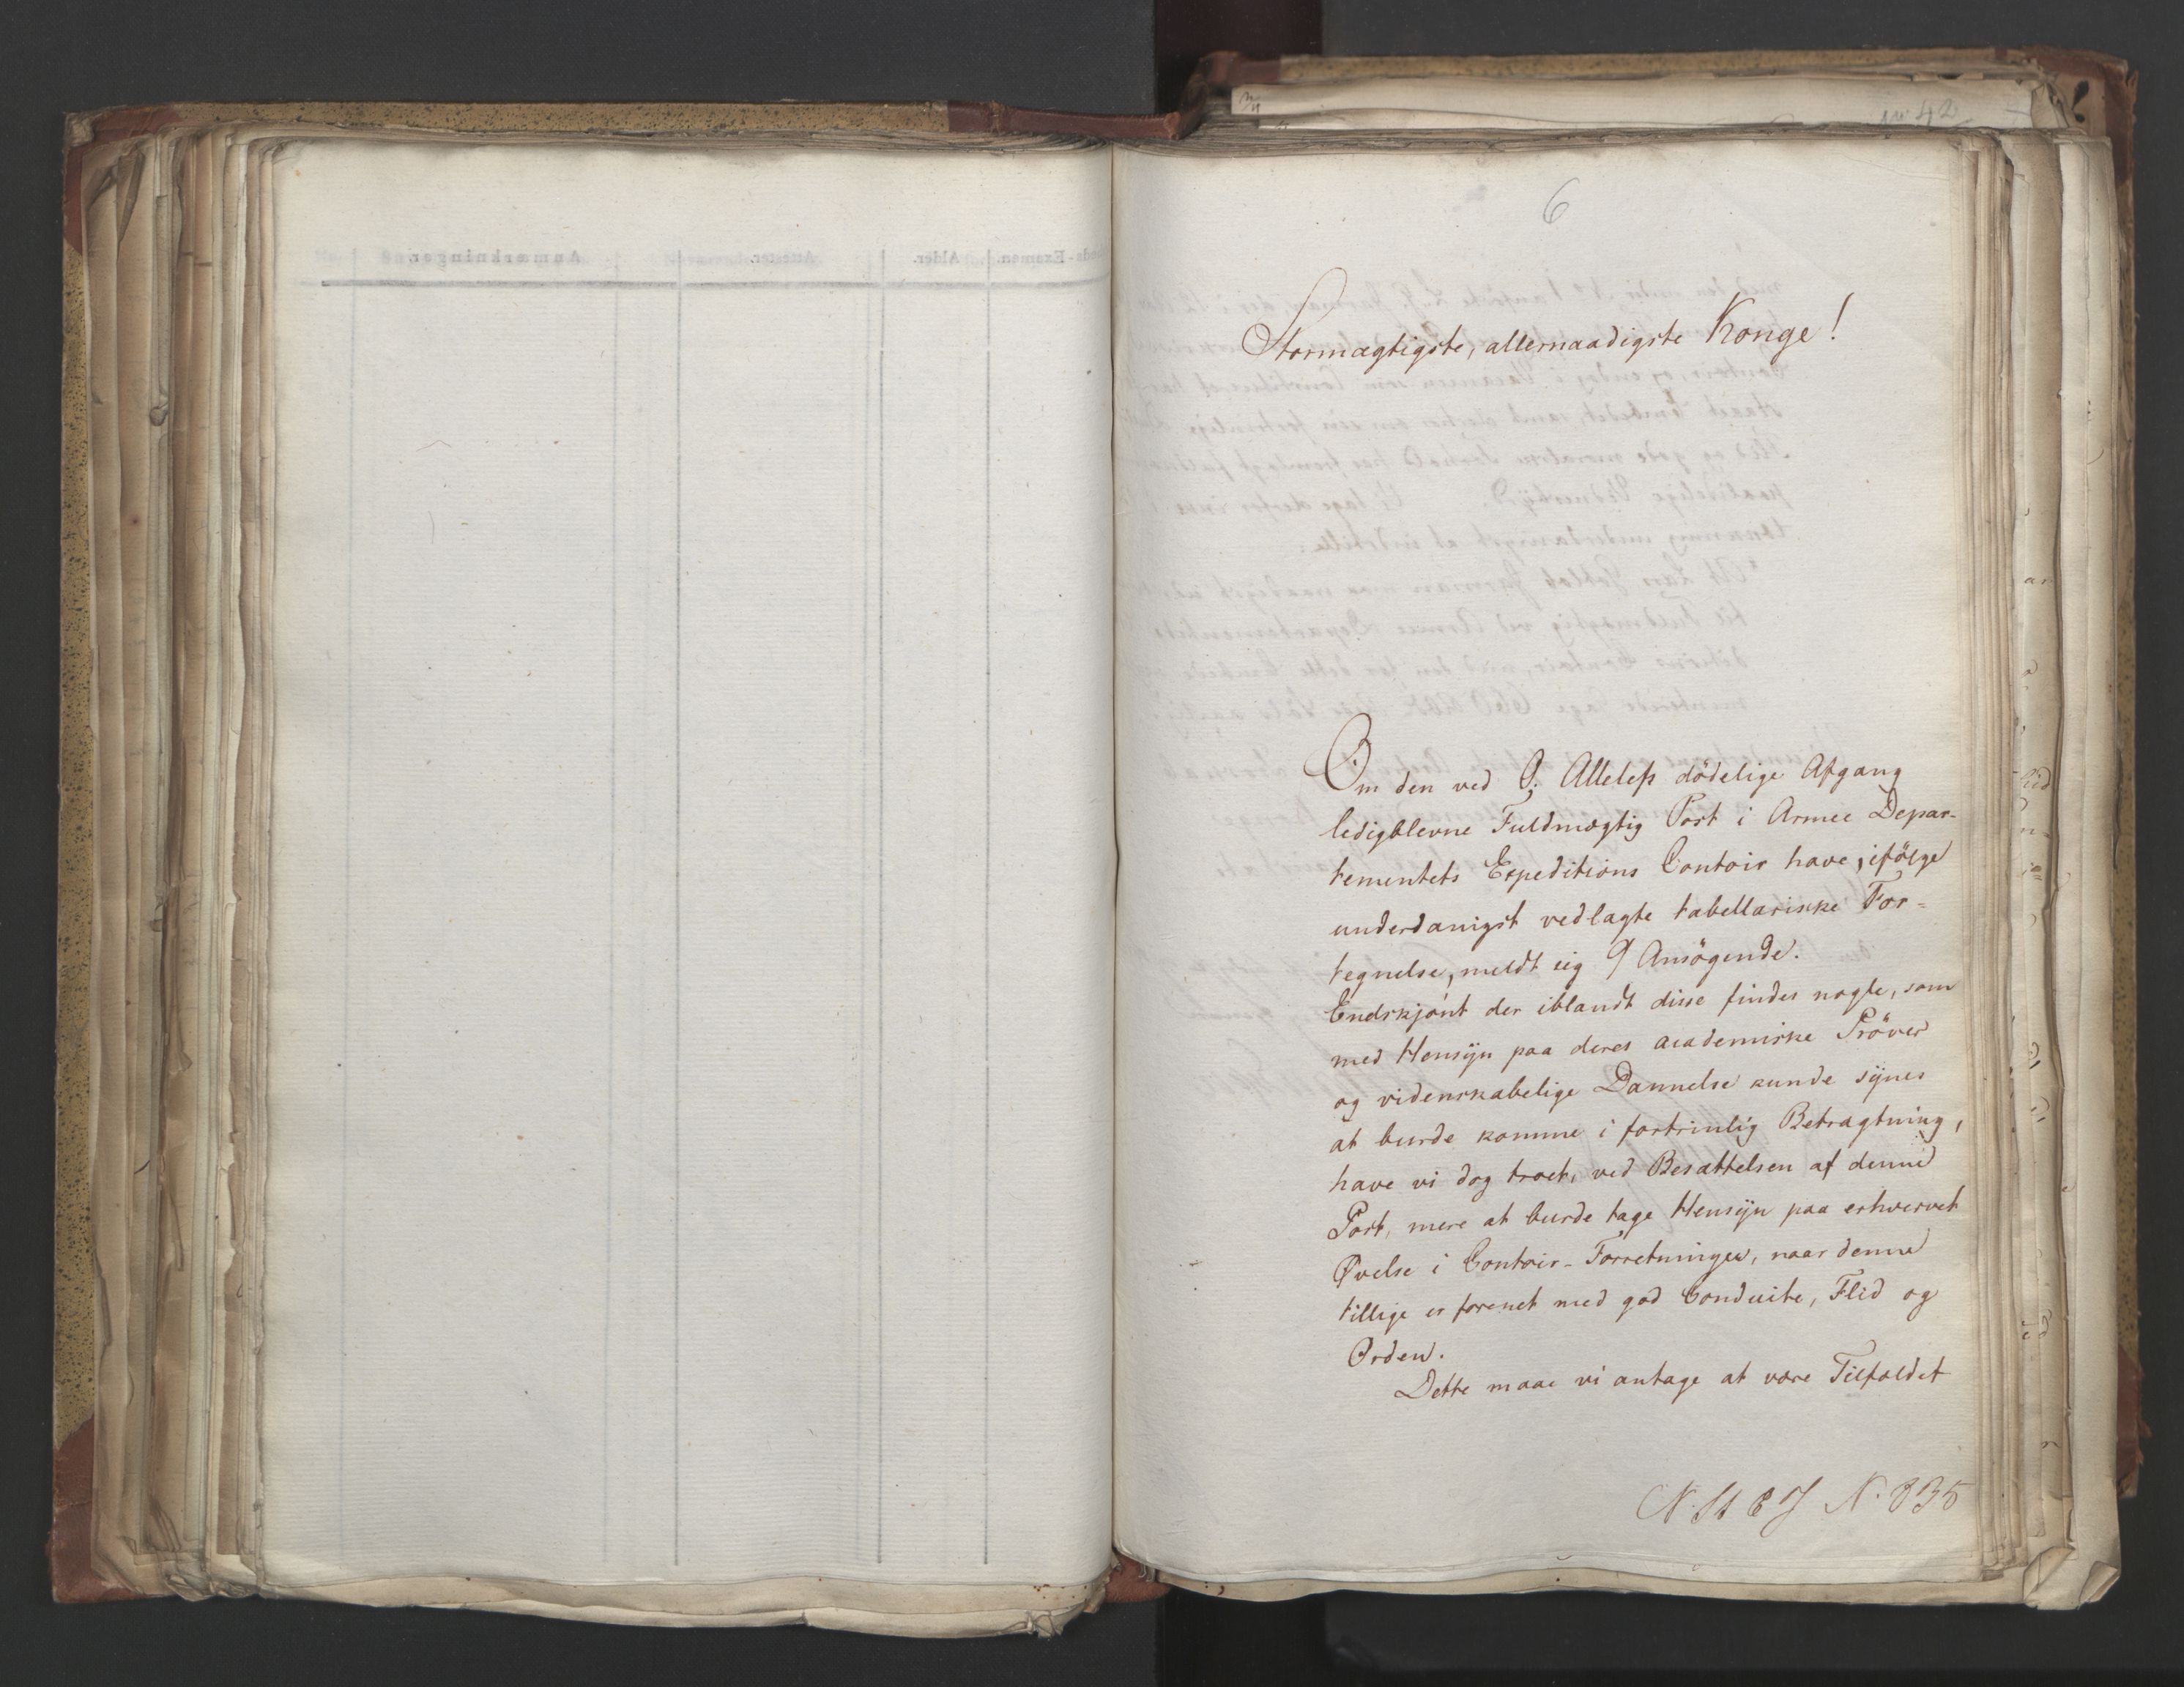 6
Stormægtigste, allernaadigste Konge!
Om den ved O. Allelefs dödelige Afgang
ledigblevne Fuldmægtig Post i Armee Depar-
tementets Expeditions Contoir have, ifölge
underdanigst vedlagte tabellariske For-
tegnelse, meldt sig 9 Ansögende.
Endskjönt der iblandt disse findes nogle, som
med Hensÿn paa deres academiske Pröver
og videnskabelige Dannelse kunde sÿnes
at burde komme i fortrinlig Betragtning,
have vi dog troet, ved Besættelsen af denne
Post, mere at burde tage Hensÿn paa erhvervet
Øvelse i Contoir-Forretninger, naar denne
tillige er forenet med god Conduite, Flid og
Orden.
Dette maae vi antage at være Tilfældet
N. St E J N. 835